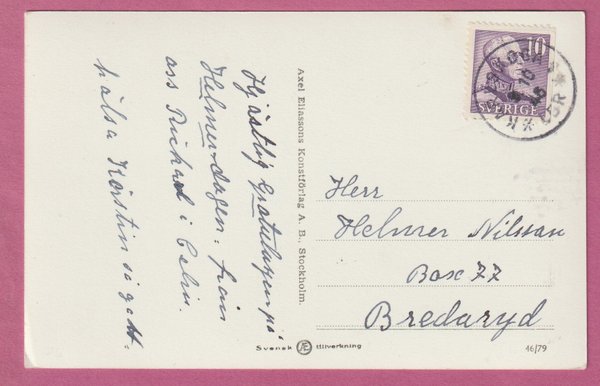 Hjärtlig Gratulazon på
Helmer-dagen. från
oss Rickard i Eslin.
hälsa Kerstin så gott.
Axel Eliassons Konstförlag A. B., Stockholm.
10
SVERIGE
Herr
Helmer Nilsson
Box 77
Bredaryd
Svensk Æ tillverkning
46/79